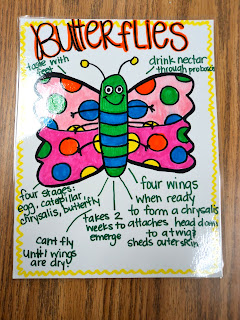 Butterflies
taste with
feet
drink nectar
through proboscis
four stages:
egg, caterpillar,
chrysalis, butterfly
can't fly
until wings
are dry
takes 2
weeks to
emerge
four wings
when ready
to form a chrysalis
attaches head down
to a twig
sheds outer skin